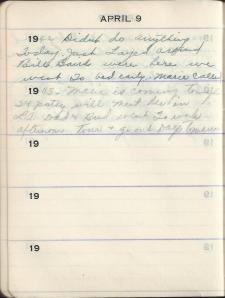 APRIL 9
1962 Didn't do anything
today. Just layed around
Bill's Back were here we
went to bed early. Marie Called
1963 - Marie is coming today
patty will meet her in
L.A. Dad & Bud went to work
afternoon. Tom &
19
19
19